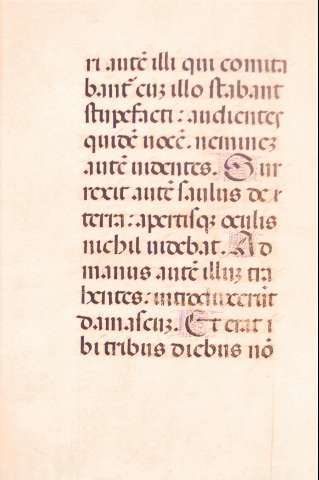 ri autē illi qui comita
bant̄ cuʒ illo stabant
stupefacti: audientes
quidē uocē. nemineʒ
autē uidentes. Sur
rexit autē saulus de
terra: apertisqʒ oculis
nichil uidebat. Ad
manus autē illuʒ tra
hentes: introduxerūt
damascuʒ. Et erat i
bi tribus diebus nō